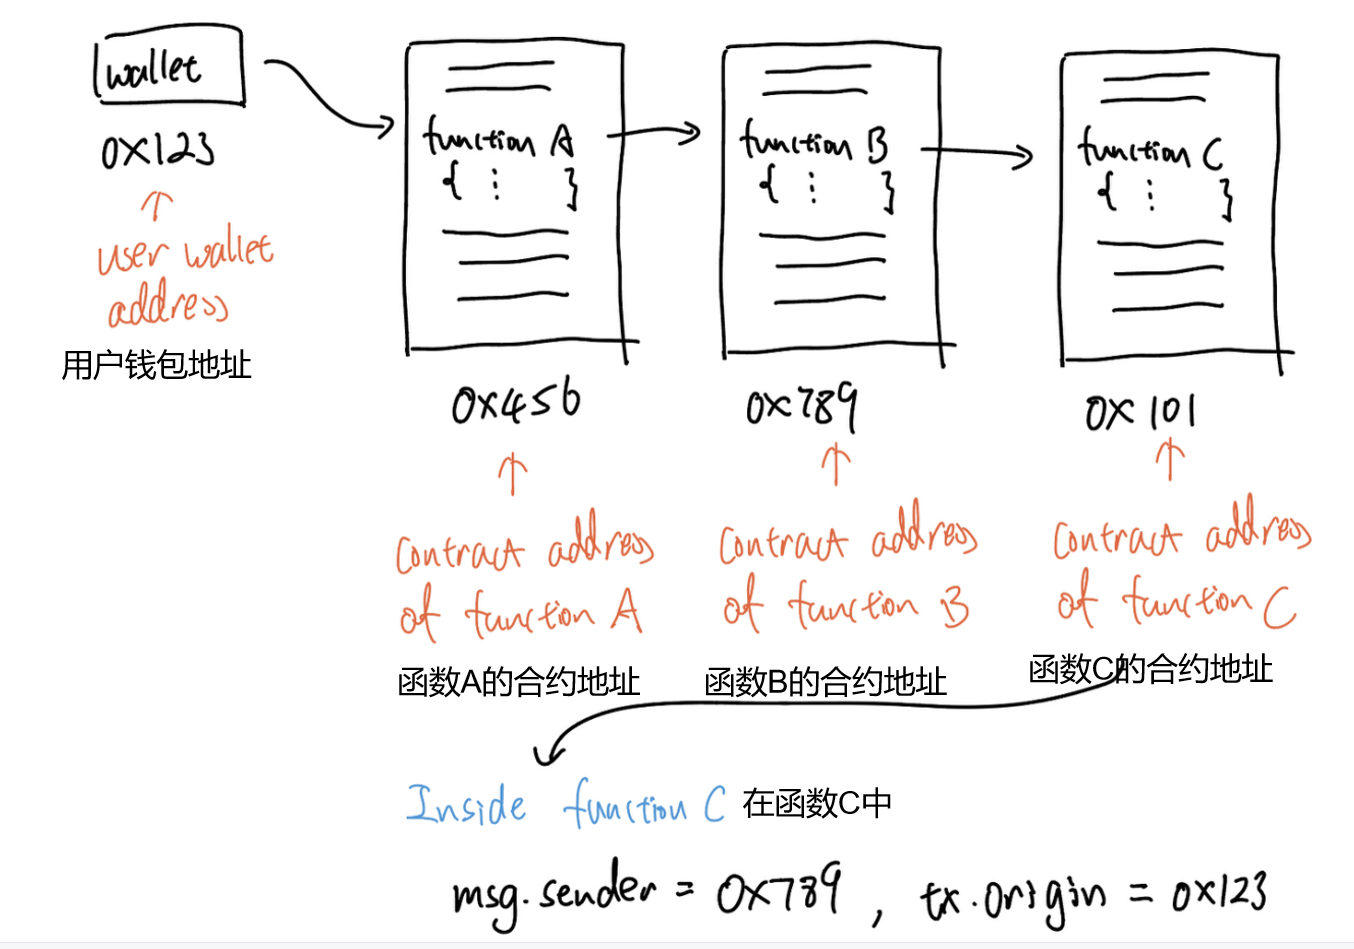 wallet
0x123
user wallet
address
用户钱包地址
function A
{ ⋮ }
0x456
contract address
of function A
函数A的合约地址
function B
{ ⋮ }
0x789
contract address
of function B
函数B的合约地址
function C
{ ⋮ }
0x101
contract address
of function C
函数C的合约地址
Inside function C 在函数C中
msg.sender = 0x789 , tx.origin = 0x123